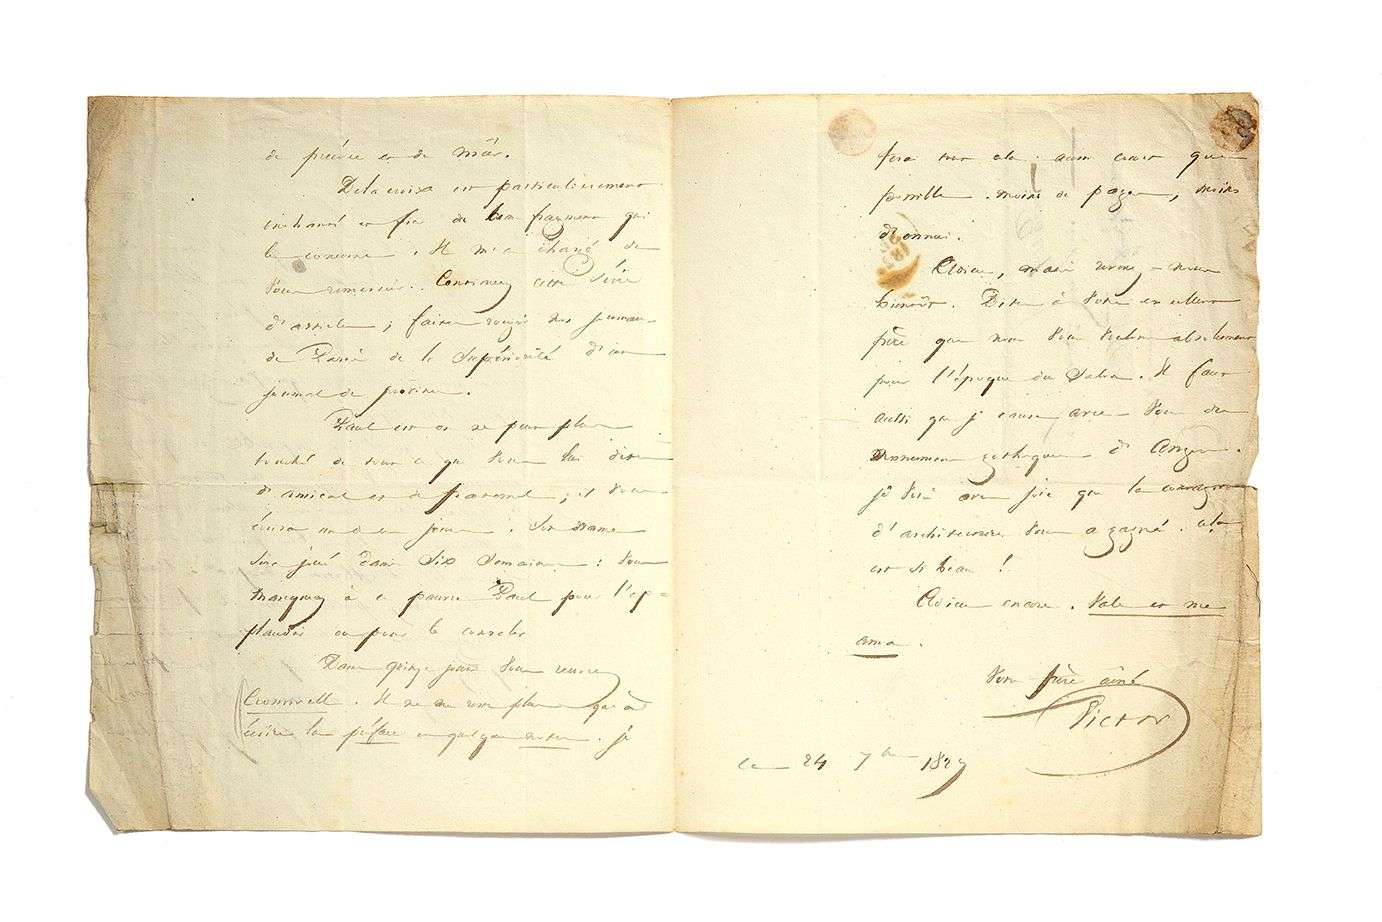 de pierre et de mâts.
Delacroix est particulièrement
enchanté et fier de ce fragment qui
le concerne. Il m'a chargé de
vous remercier. Continuez cette série
d'articles ; faites rougir nos journaux
de Paris de la supériorité d'un
journal de province.
Paul est on ne peut plus
touché de tout ce que vous lui dites
d'amical et de fraternel ; il vous
écrira un de ces jours. Son drame
sera joué dans six semaines : vous
manquez à ce pauvre Paul pour l'ap=
plaudir ou pour le consoler
Dans quinze jours vous recevrez
Cromwell. Il ne me reste plus qu'à
écrire la préface et quelques notes. Je
ferai tout cela aussi court que
possible. moins de pages, moins
d'ennui.
Adieu, mais revenez-nous
bientôt. Dites à votre excellent
père que nous vous voulons absolument
pour l'époque du Salon. Il faut
aussi que je cause avec vous des
monumens gothiques d'Angers.
je vois avec joie que la contagion
d'architecture vous a gagné. cela
est si beau !
Adieu encore. Vale et me
ama.
Votre frère aîné
Victor
Ce 24 7bre 1827